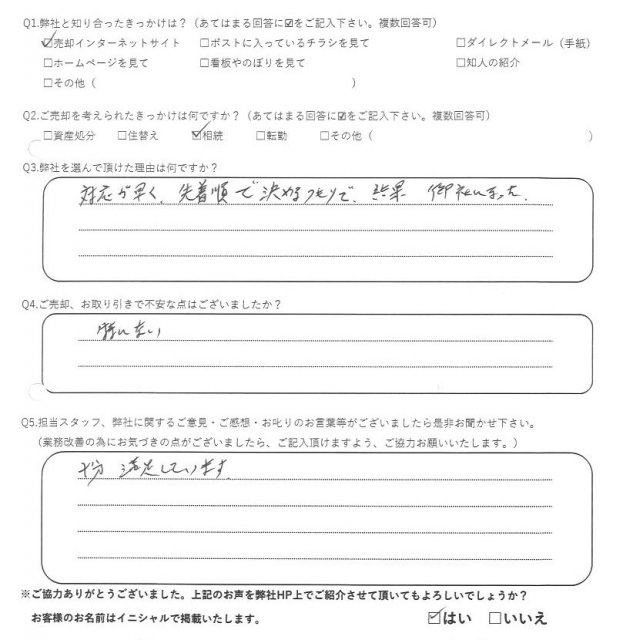 Q1.弊社と知り合ったきっかけは？（あてはまる回答に☑をご記入下さい。複数回答可）
☑売却インターネットサイト □ポストに入っているチラシを見て □ダイレクトメール（手紙）
□ホームページを見て □看板やのぼりを見て □知人の紹介
□その他（ ）
Q2.ご売却を考えられたきっかけは何ですか？（あてはまる回答に☑をご記入下さい。複数回答可）
□資産処分 □住替え ☑相続 □転勤 □その他（ ）
Q3.弊社を選んで頂けた理由は何ですか？
対応が早く、先着順で決めるつもりで、結果 御社
Q4.ご売却、お取り引きで不安な点はございましたか？
特にない
Q5.担当スタッフ、弊社に関するご意見・ご感想・お叱りのお言葉等がございましたら是非お聞かせ下さい。
（業務改善の為にお気づきの点がございましたら、ご記入頂けますよう、ご協力お願いいたします。）
十分 満足しています。
※ご協力ありがとうございました。上記のお声を弊社HP上でご紹介させて頂いてもよろしいでしょうか？
お客様のお名前はイニシャルで掲載いたします。 ☑はい □いいえ